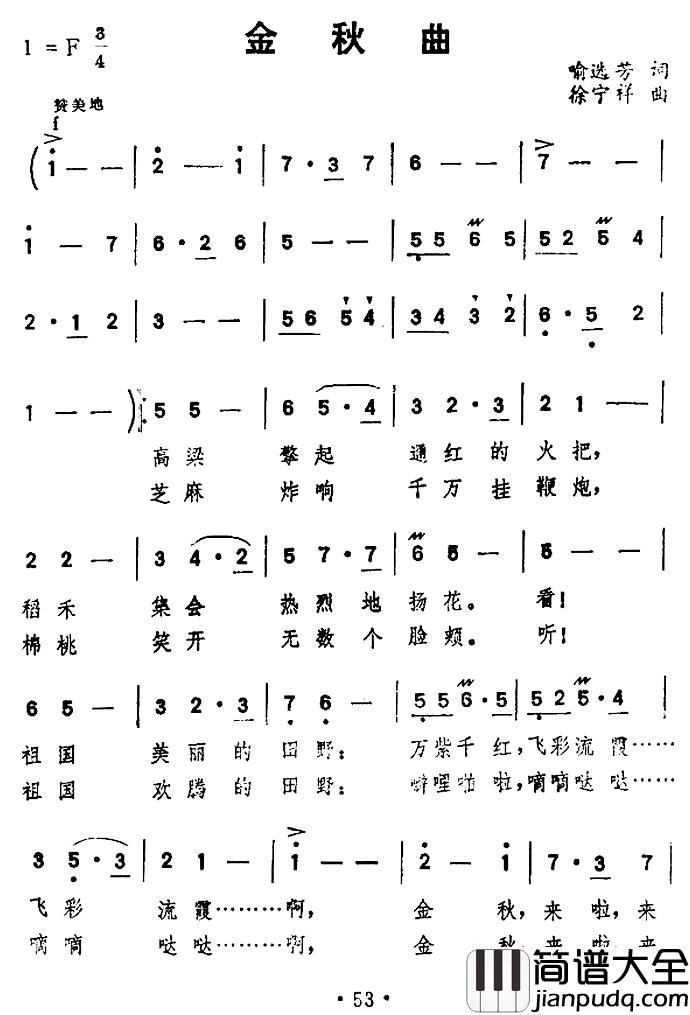 金秋曲
1 = F 3/4
喻选芳 词
徐宁祥 曲
赞美地
f
( 1 — — | 2 — 1 | 7 · 3 7 | 6 — — | 7 — — |
1 — 7 | 6 · 2 6 | 5 — — | 5 5 6 5 | 5 2 5 4 |
2 · 1 2 | 3 — — | 5 6 5 4 | 3 4 3 2 | 6 · 5 2 |
1 — — ) 5 5 — | 6 5 · 4 | 3 2 · 3 | 2 1 — |
高粱 擎起 通红的火把,
芝麻 炸响 千万挂鞭炮,
2 2 — | 3 4 · 2 | 5 7 · 7 | 6 5 — | 5 — — |
稻禾 集会 热烈地扬花。看!
棉桃 笑开 无数个脸颊。听!
6 5 — | 3 2 · 3 | 7 6 — | 5 5 6 · 5 | 5 2 5 · 4 |
祖国 美丽的田野: 万紫千红,飞彩流霞……
祖国 欢腾的田野: 噼哩啪啦,嘀嘀哒哒……
3 5 · 3 | 2 1 — | 1 — — | 2 — 1 | 7 · 3 7 |
飞彩 流霞……啊, 金 秋,来啦,来
嘀嘀 哒哒……啊, 金 秋,来啦,来
· 53 ·
简谱大全
jianpudq.com